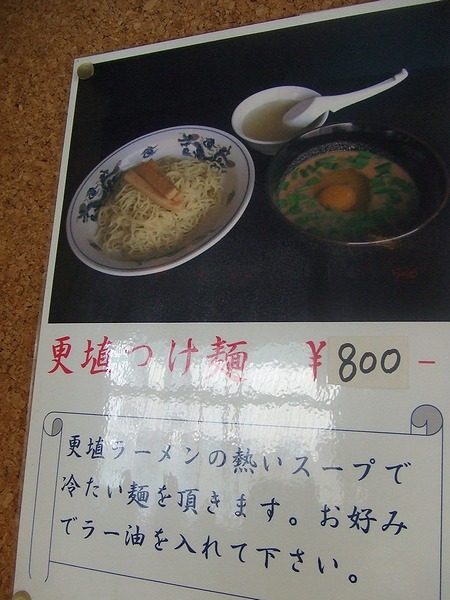 更埴つけ麺 ¥800-
更埴ラーメンの熱いスープで
冷たい麺を頂きます。お好み
でラー油を入れて下さい。